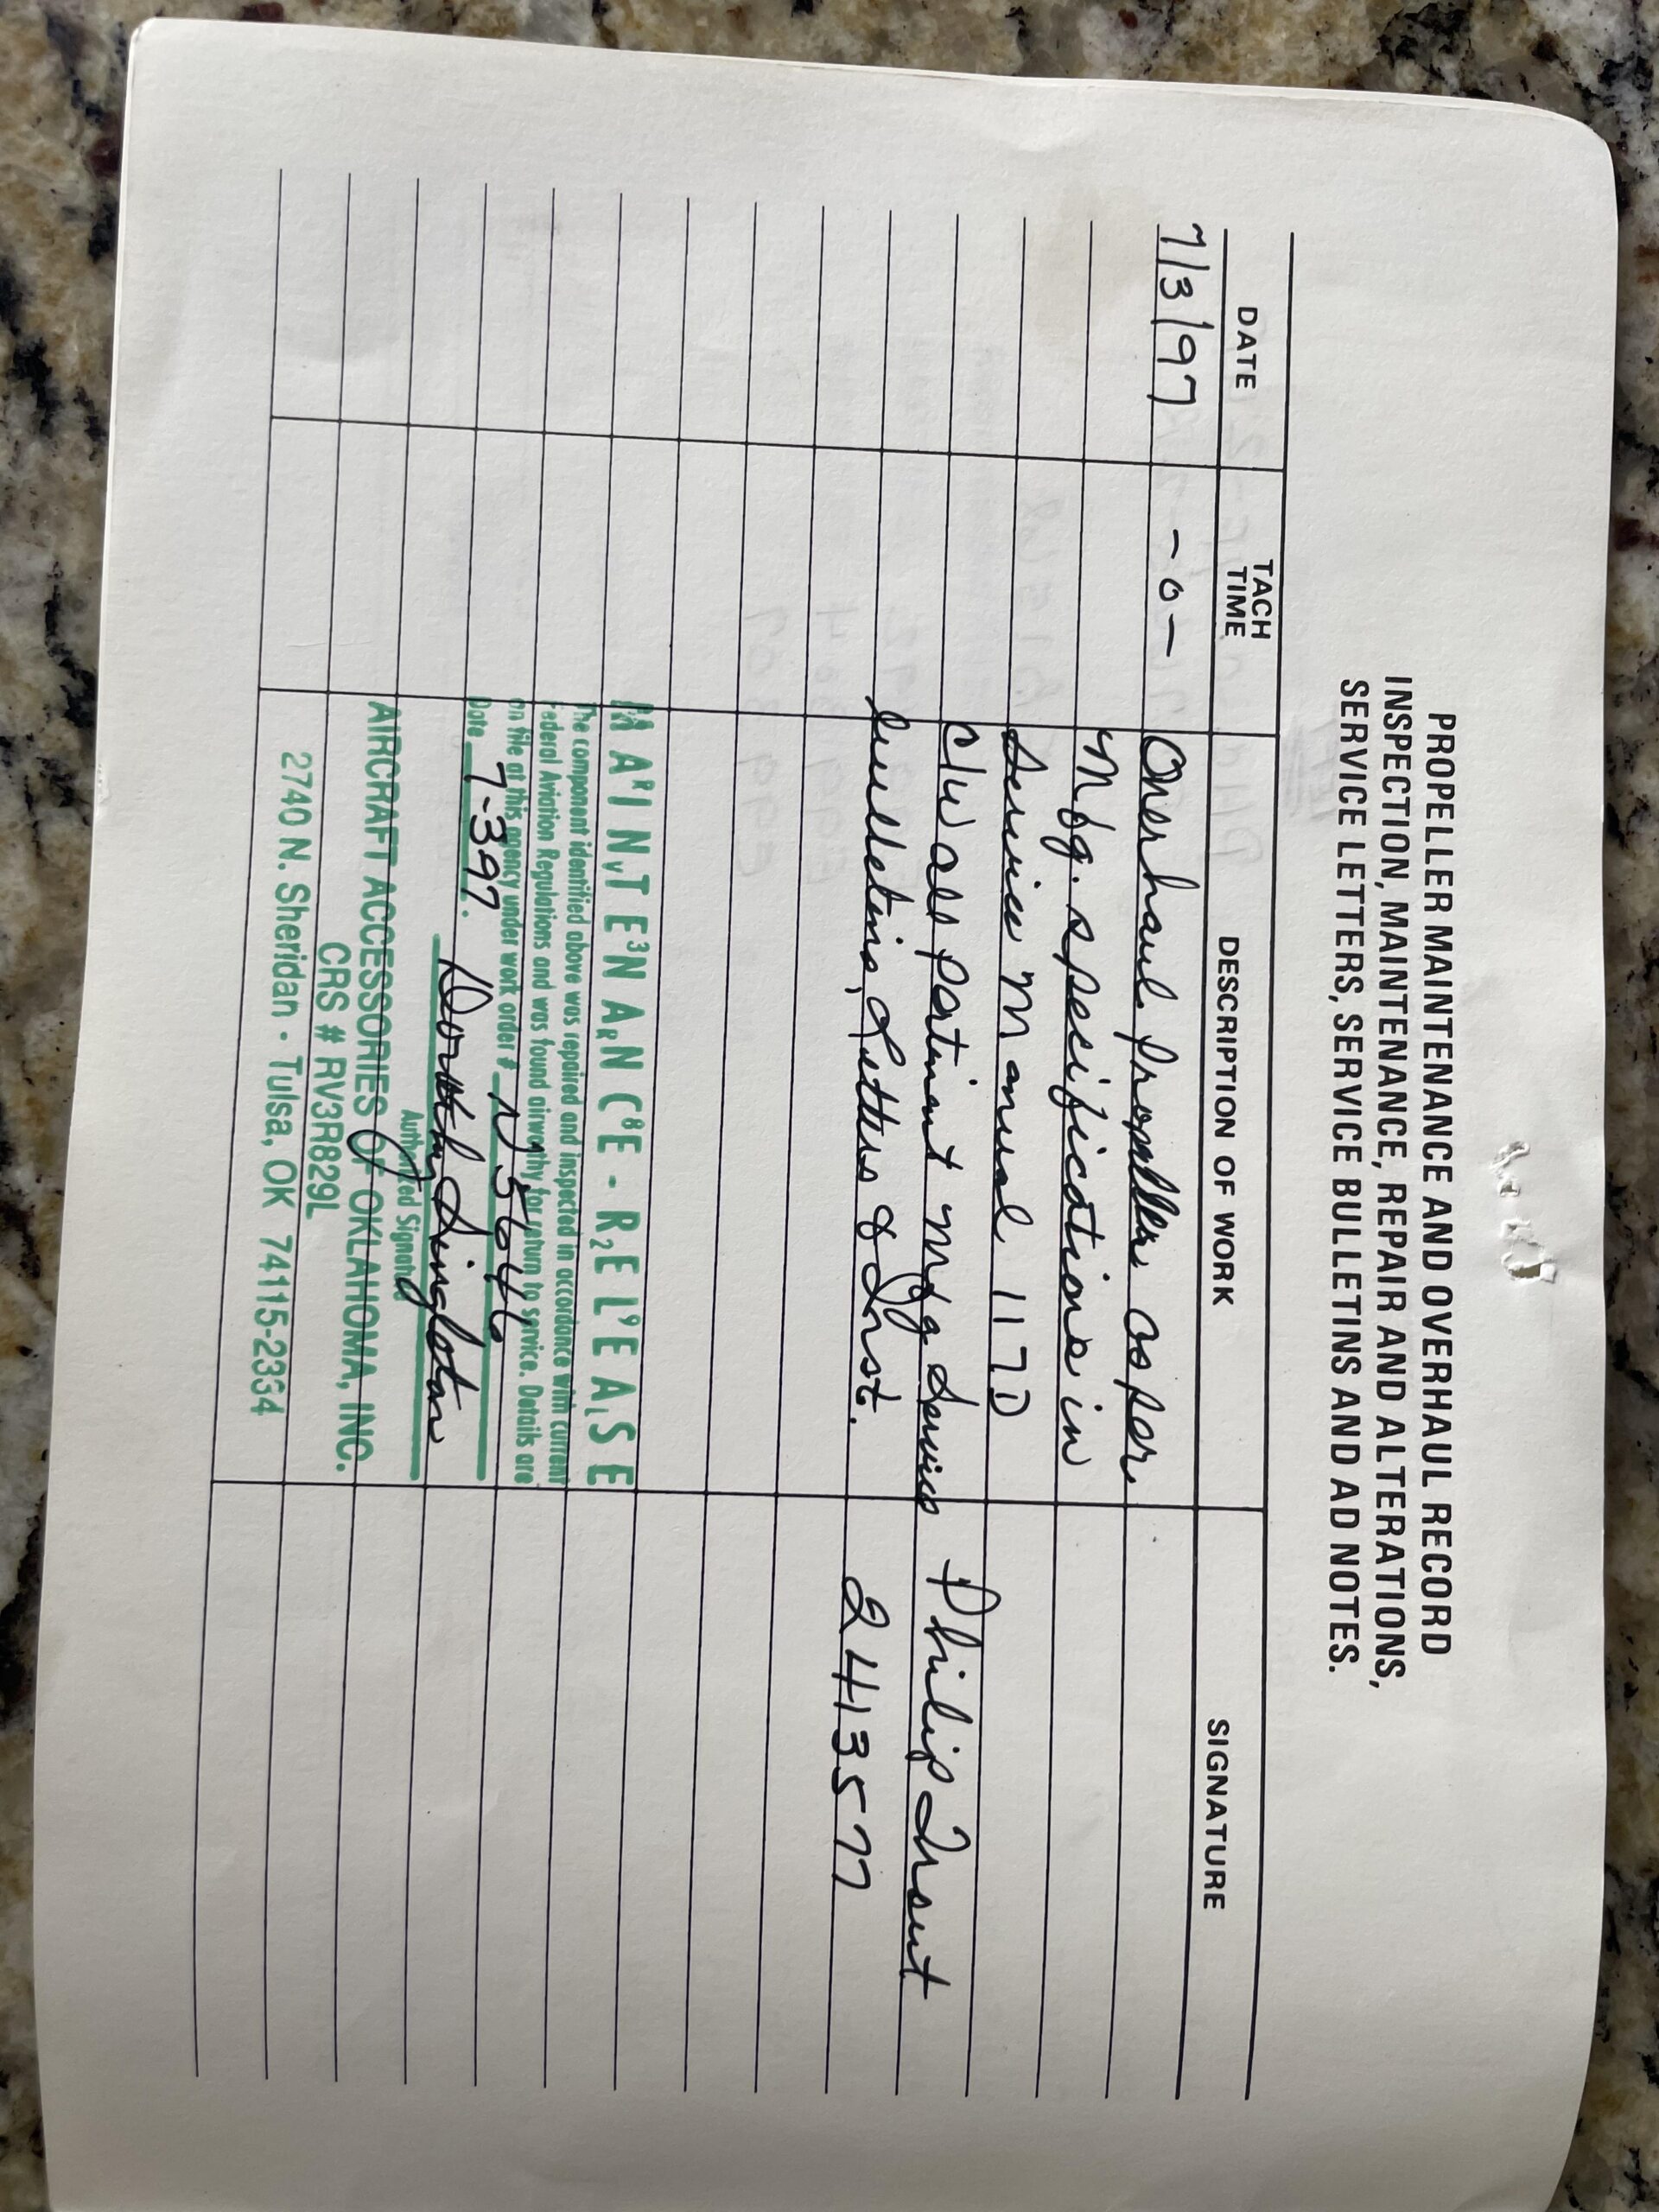 PROPELLER MAINTENANCE AND OVERHAUL RECORD
INSPECTION, MAINTENANCE, REPAIR AND ALTERATIONS,
SERVICE LETTERS, SERVICE BULLETINS AND AD NOTES.
DATE TACH TIME DESCRIPTION OF WORK SIGNATURE
7/3/97 -0- Overhaul Propeller as per
Mfg. specifications in
Service Manual 117D
C/W all pertinent Mfg. Service Philip
bulletins, Letters & Inst. 2413577
MAINTENANCE - RELEASE
RV3R829L
The component identified above was repaired and inspected in accordance with current
Federal Aviation Regulations and was found airworthy for return to service. Details are
on file at this agency under work order # N 5646
Date 7-3-97.
Authorized Signature
AIRCRAFT ACCESSORIES OF OKLAHOMA, INC.
CRS # RV3R829L
2740 N. Sheridan - Tulsa, OK 74115-2334